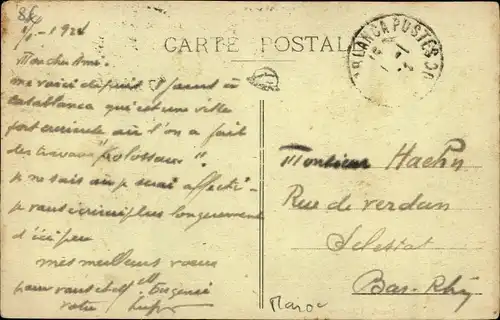 1924
CARTE POSTALE
CASABLANCA POSTES
Mon cher Ami.
me voici depuis 8 jours à
Casablanca qui est une ville
fort curieuse où l'on a fait
des travaux "Kolossaux".
je ne sais où je serai affecté
je vous écrirai plus longuement
d'ici peu
mes meilleurs vœux
pour vous et Melle Eugénie
votre
Monsieur Haehn
Rue de verdun
Selestat
Bas-Rhin
Maroc